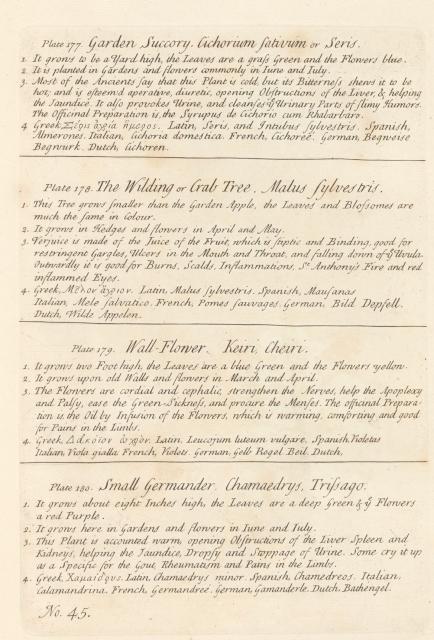 Plate 177. Garden Succory. Cichorium sativum or Seris.
1. It grows to be a Yard high, the Leaves are a grass Green and the Flowers blue.
2. It is planted in Gardens and flowers commonly in Iune and Iuly.
3. Most of the Ancients say that this Plant is cold, but its Bitterness shews it to be
hot; and is esteem'd aperative, diuretic, opening Obstructions of the Liver, & helping
the Iaundice. It also provokes Urine, and cleanses ye Urinary Parts of slimy Humors.
The Officinal Preparation is, the Syrupus de Cichorio cum Rhabarbaro.
4 Greek, Latin, Seris, and Intubus sylvestris. Spanish,
Almerones. Italian, Cichoria domestica. French, Cichoree. German, Begweise
Begwurk. Dutch, Cichoren.
Plate 178. The Wilding or Crab Tree. Malus sylvestris.
1. This Tree grows smaller than the Garden Apple, the Leaves and Blossomes are
much the same in Colour.
2. It grows in Hedges and flowers in April and May.
3. Verjuice is made of the Juice of the Fruit, which is stiptic and Binding, good for
restringent Gargles, Ulcers in the Mouth and Throat, and falling down of ye Uvula.
Outwardly it is good for Burns, Scalds, Inflammations, St. Anthony's Fire and red
inflammed Eyes.
4. Greek, Μῆλον ἄγριον. Latin, Malus sylvestris. Spanish, Mausanas
Italian, Mele salvatico. French, Pomes sauvages. German, Bild Depfell.
Dutch, Wilde Appelen.
Plate 179. Wall-Flower. Keiri, Cheiri.
1. It grows two Foot high, the Leaves are a blue Green and the Flowers yellow.
2. It grows upon old Walls and flowers in March and April.
3. The Flowers are cordial and cephalic, strengthen the Nerves, help the Apoplexy
and Palsy, ease the Green-Sickness, and procure the Menses. The officinal Prepara-
tion is the Oil by Infusion of the Flowers, which is warming, comforting and good
for Pains in the Limbs.
4. Greek, Latin, Leucojum luteum vulgare. Spanish, Violetas
Italian, Viola gialla. French, Violets. German, Gelb Nagel Beil. Dutch,
Plate 180. Small Germander. Chamaedrys, Trissago.
1. It grows about eight Inches high, the Leaves are a deep Green & ye Flowers
a red Purple.
2. It grows here in Gardens and flowers in Iune and Iuly.
3. This Plant is accounted warm, opening Obstructions of the Liver Spleen and
Kidneys, helping the Iaundice, Dropsy and Stoppage of Urine. Some cry it up
as a Specific for the Gout, Rheumatism and Pains in the Limbs.
4. Greek, Χαμαίδρυς. Latin, Chamaedrys minor. Spanish, Chamedreos. Italian,
Calamandrina. French, Germandree. German, Gamanderle. Dutch, Bathengel.
No. 45.